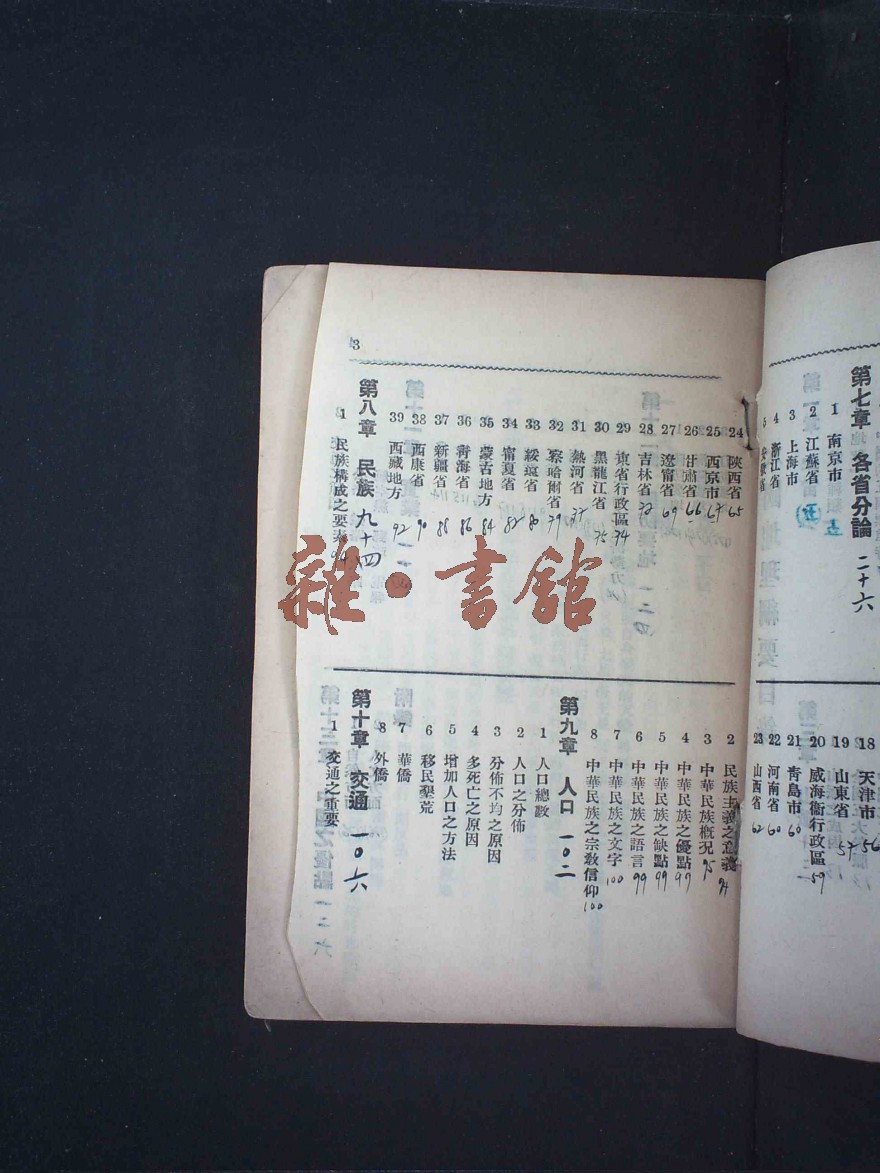 第七章 各省分論 二十六
1 南京市
2 江蘇省
3 上海市
4 浙江省
5 安徽省
18 天津市 56
19 山東省 57
20 威海衞行政區 59
21 靑島市 60
22 河南省 60
23 山西省 62
3
24 陝西省 65
25 西京市 67
26 甘肅省 66
27 遼甯省 69
28 吉林省 72
29 東省行政區 74
30 黑龍江省 75
31 熱河省 77
32 察哈爾省 79
33 綏遠省 80
34 甯夏省 82
35 蒙古地方 84
36 靑海省 86
37 新疆省 88
38 西康省 90
39 西藏地方 92
第八章 民族 九十四
1 民族構成之要素 94
2 民族主義之意義 94
3 中華民族槪況 95
4 中華民族之優點 99
5 中華民族之缺點 99
6 中華民族之語言 99
7 中華民族之文字 100
8 中華民族之宗敎信仰 100
第九章 人口 一〇二
1 人口總數
2 人口之分佈
3 分佈不均之原因
4 多死亡之原因
5 增加人口之方法
6 移民墾荒
7 華僑
8 外僑
第十章 交通 一〇六
1 交通之重要
雜·書館